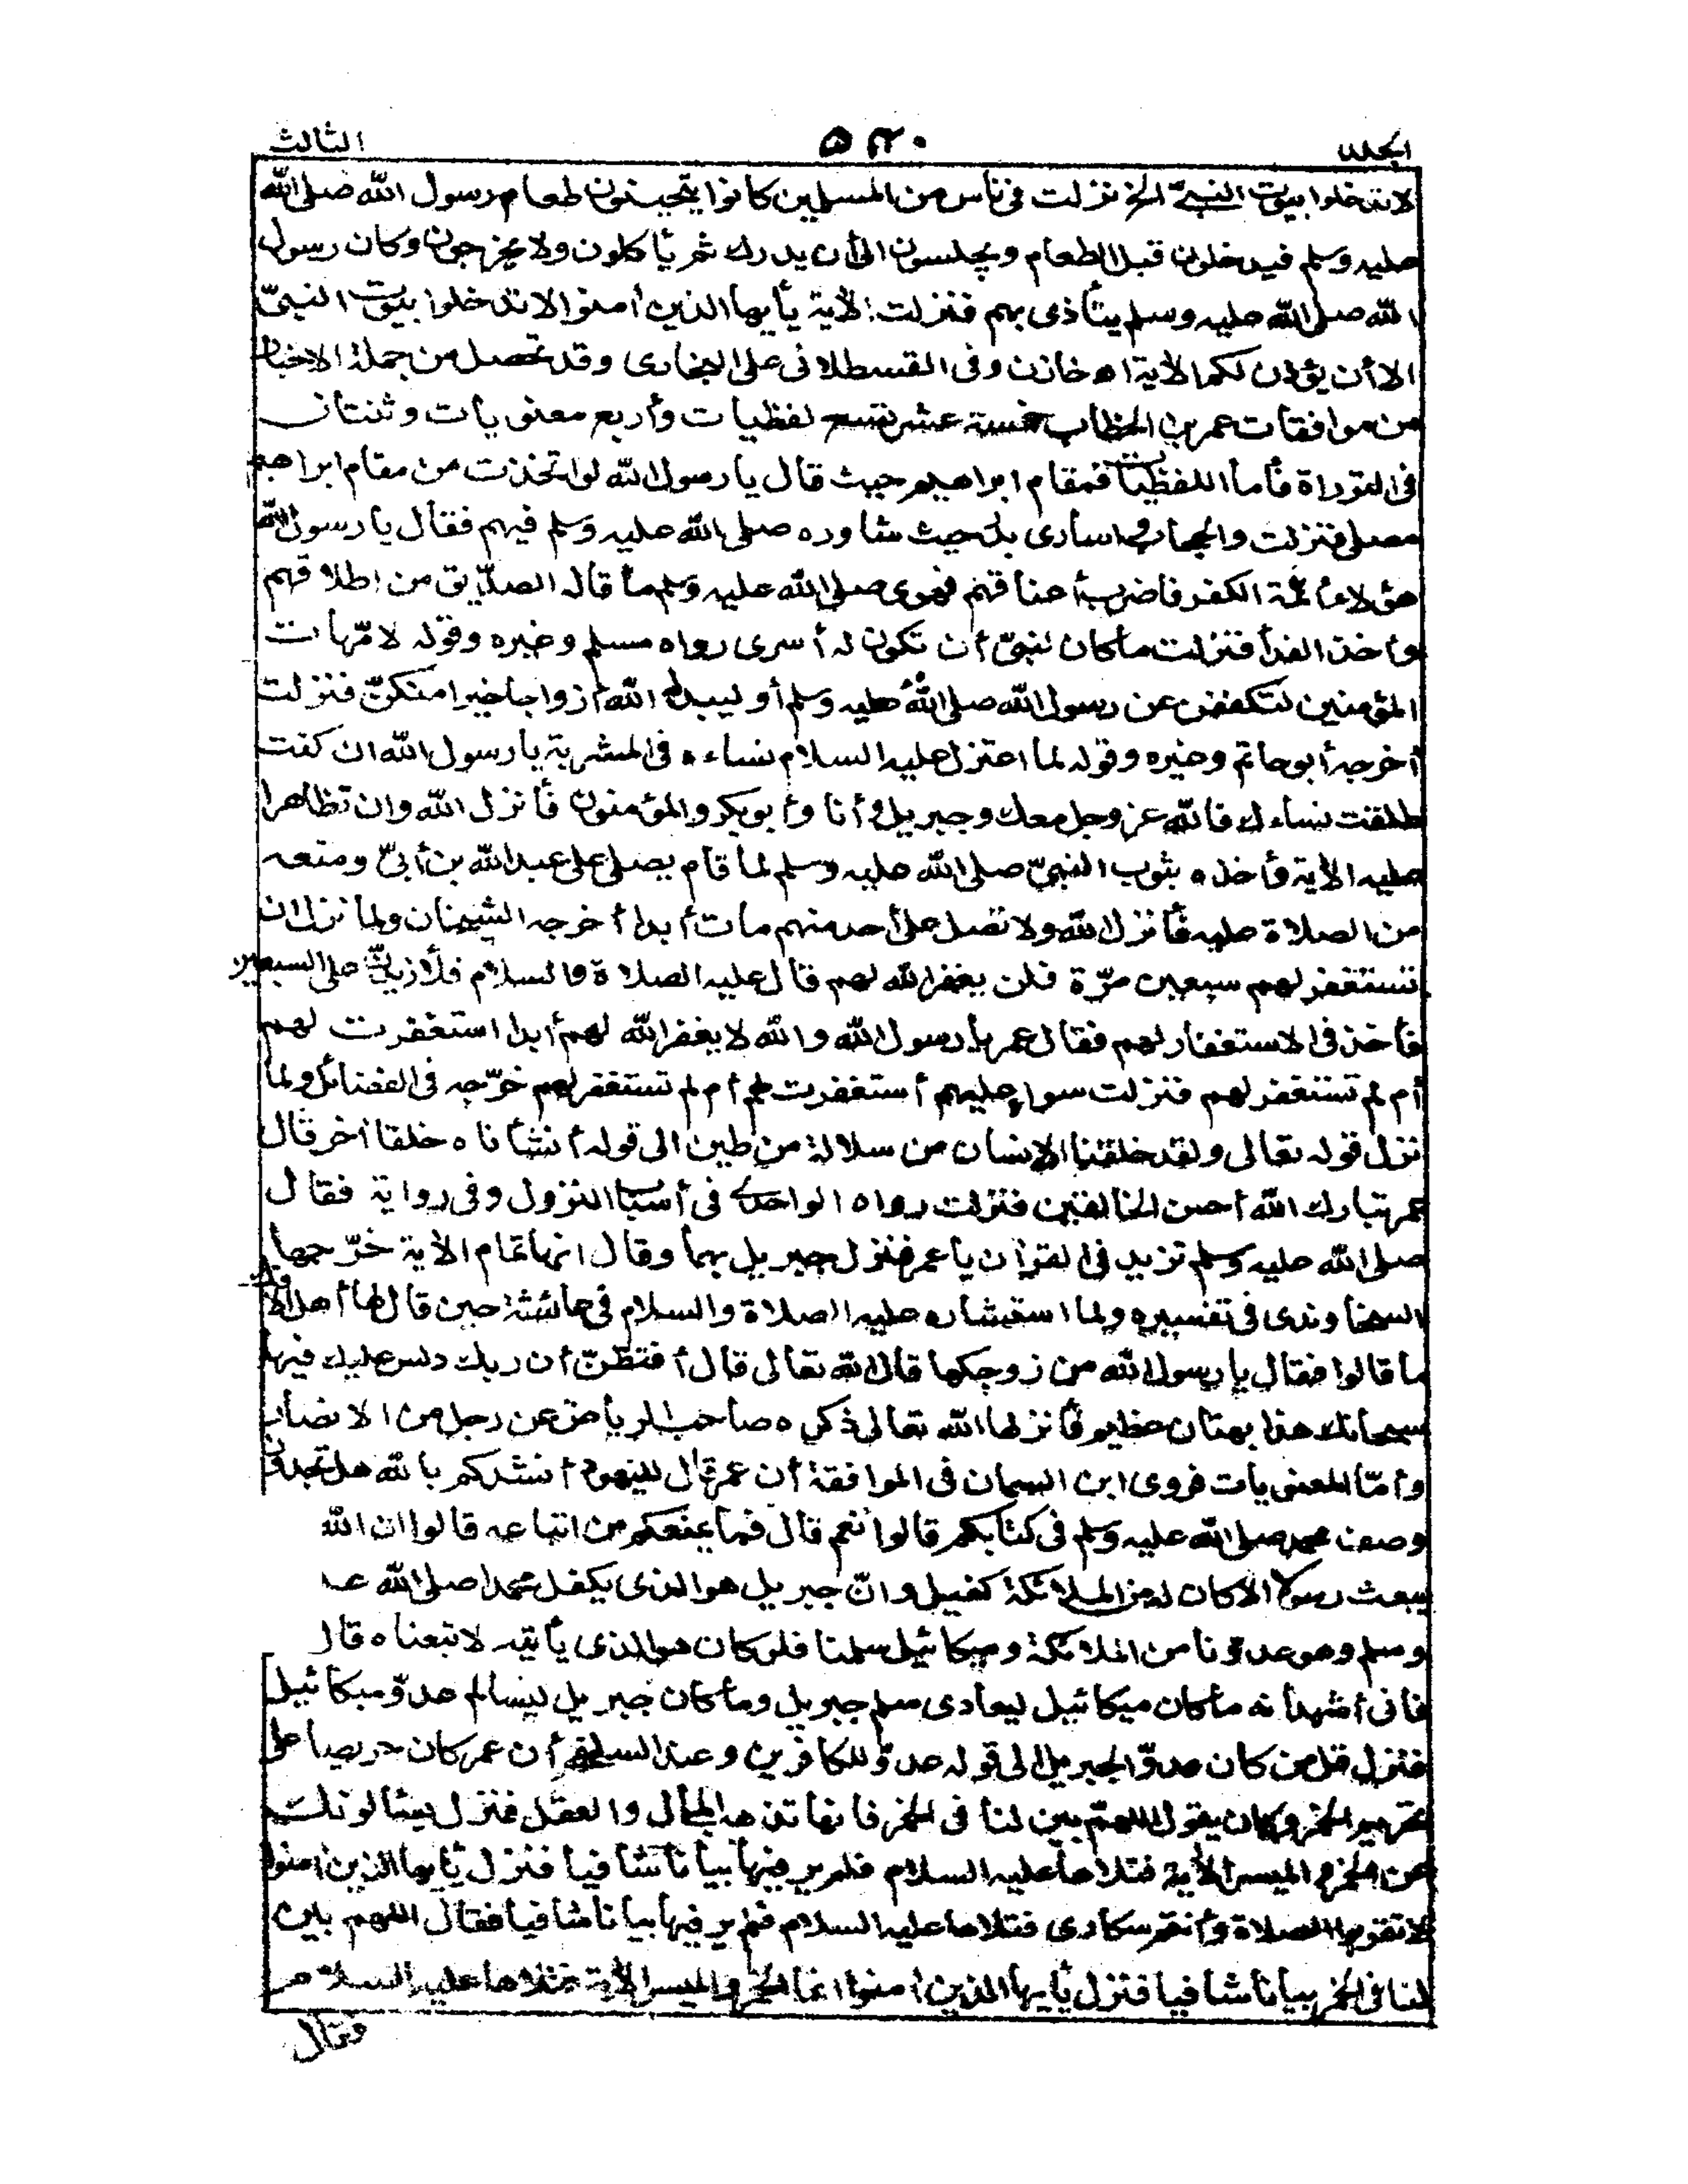 المجلد ٥٢٠ الثالث
لا تدخلوا بيوت النبيّ الخ نزلت فى ناس من المسلمين كانوا يتحينون طعام رسول الله صلى الله
عليه وسلم فيدخلون قبل الطعام ويجلسون الى أن يدرك ثم يأكلون ولا يخرجون وكان رسول
الله صلى الله عليه وسلم يتأذى بهم فنزلت الأية يأيها الذين أمنوا لا تدخلوا بيوت النبىّ
الا أن يؤذن لكم الأية اه خازن وفى القسطلانى على البخارى وقد تحصل من جملة الاخبار
من موافقات عمر بن الخطاب خمسة عشر تسع لفظيات وأربع معنويات وثنتان
فى التوراة فأما اللفظيات فمقام ابراهيم حيث قال يا رسول الله لو اتخذت من مقام ابراهيم
مصلى فنزلت والحجاب وأسارى بدر حيث شاوره صلى الله عليه وسلم فيهم فقال يا رسول الله
هؤلاء أئمة الكفر فاضرب أعناقهم فهوى صلى الله عليه وسلم ما قاله الصدّيق من اطلاقهم
وأخذ الفدأ فنزلت ما كان لنبىّ أن تكون له أسرى رواه مسلم وغيره وقوله لامّهات
المؤمنين لتكففن عن رسول الله صلى الله عليه وسلم أو ليبدله الله أزواجا خيرا منكنّ فنزلت
أخرجه أبو حاتم وغيره وقوله لما اعتزل عليه السلام نساءه فى المشربة يا رسول الله ان كنت
طلقت نساءك فالله عز وجل معك وجبريل وأنا وأبو بكر والمؤمنون فأنزل الله وان تظاهرا
عليه الأية وأخذه بثوب النبىّ صلى الله عليه وسلم لما قام يصلى على عبد الله بن أبىّ ومنعه
من الصلاة عليه فأنزل الله ولا تصل على أحد منهم مات أبدا أخرجه الشيخان ولما نزل ان
تستغفر لهم سبعين مرّة فلن يغفر الله لهم قال عليه الصلاة والسلام فلأزيدنّ على السبعين
فأخذ فى الاستغفار لهم فقال عمر يا رسول الله والله لا يغفر الله لهم أبدا استغفرت لهم
أم لم تستغفر لهم فنزلت سواء عليهم أستغفرت لهم أم لم تستغفر لهم خرّجه فى الفضائل ولما
نزل قوله تعالى ولقد خلقنا الانسان من سلالة من طين الى قوله أنشأناه خلقا أخر قال
عمر تبارك الله أحسن الخالقين فنزلت رواه الواحدى فى أسباب النزول وفى رواية فقال
صلى الله عليه وسلم تزيد فى القرأن يا عمر فنزل جبريل بها وقال انها تمام الأية خرّجها
السخاوندى فى تفسيره ولما استشاره عليه الصلاة والسلام فى عائشة حين قال لها أهل الافك
ما قالوا فقال يا رسول الله من زوجكها قال الله تعالى قال أفتظنّ أن ربك دلس عليك فيها
سبحانك هذا بهتان عظيم فأنزلها الله تعالى ذكره صاحب الرياض عن رجل من الانصار
وأمّا المعنويات فروى ابن السمان فى الموافقة أن عمر قال لليهود أنشدكم بالله هل تجدون
وصف محمد صلى الله عليه وسلم فى كتابكم قالوا نعم قال فما يمنعكم من اتباعه قالوا ان الله
يبعث رسولا الا كان له من الملائكة كفيل وانّ جبريل هو الذى يكفل محمدا صلى الله عـ
وسلم وهو عدوّنا من الملائكة وميكائيل سلمنا فلو كان هو الذى يأتيه لاتبعناه قال
فانى أشهد أنه ما كان ميكائيل ليعادى سلم جبريل وما كان جبريل ليسالم عدوّ ميكائيل
فنزل قل من كان عدوّا لجبريل الى قوله عدوّ للكافرين وعند أن عمر كان حريصا على
تحريم الخمر وكان يقول اللهمّ بين لنا فى الخمر فانها تذهب المال والعقل فنزل يسألونك
عن الخمر والميسر الأية فتلاها عليه السلام فلم ير فيها بيانا شافيا فنزل يأيها الذين أمنوا
لا تقربوا الصلاة وأنتم سكارى فتلاها عليه السلام فلم ير فيها بيانا شافيا فقال اللهم بين
لنا فى الخمر بيانا شافيا فنزل يأيها الذين أمنوا انما الخمر والميسر الأية فتلاها عليه السلام
فقال